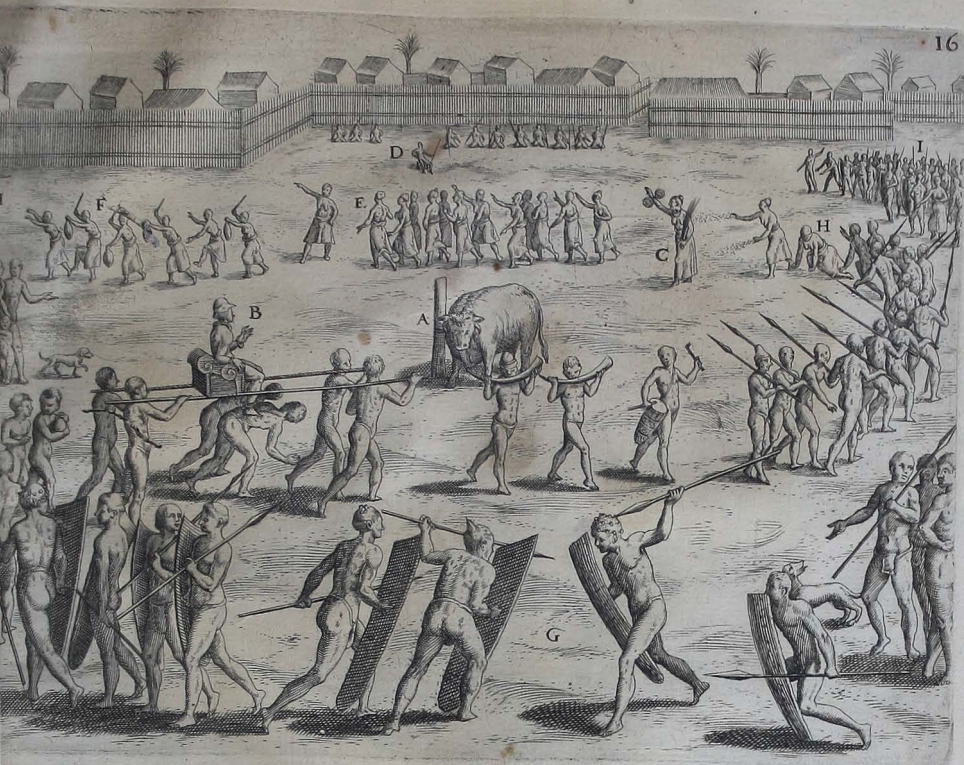 16
D
I
F
E
H
C
B
A
G